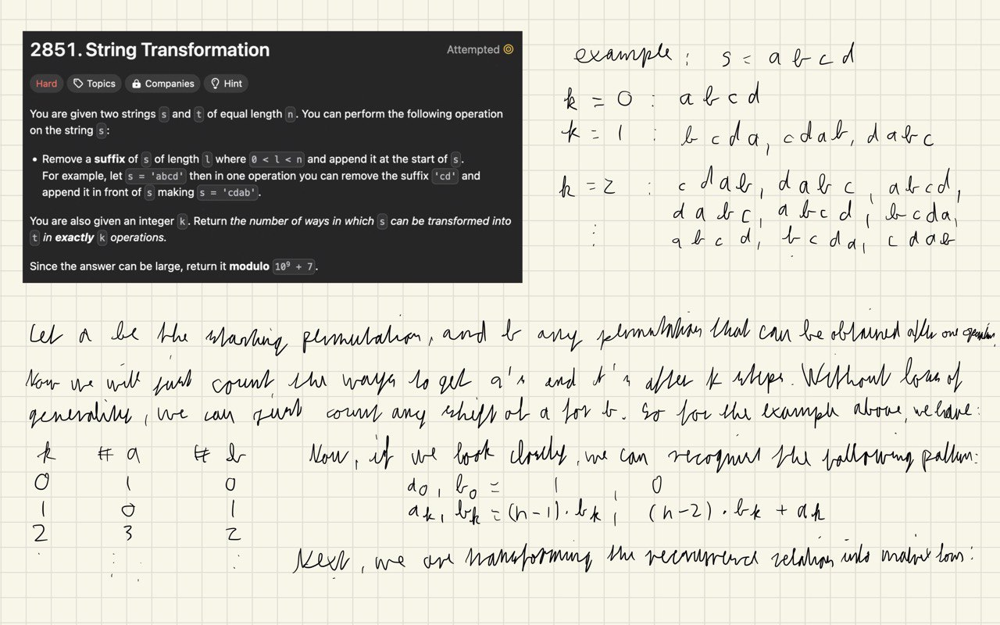 2851. String Transformation
Attempted
Hard Topics Companies Hint
You are given two strings s and t of equal length n. You can perform the following operation
on the string s:
• Remove a suffix of s of length l where 0 < l < n and append it at the start of s.
For example, let s = 'abcd' then in one operation you can remove the suffix 'cd' and
append it in front of s making s = 'cdab'.
You are also given an integer k. Return the number of ways in which s can be transformed into
t in exactly k operations.
Since the answer can be large, return it modulo 10⁹ + 7.
example: s = abcd
k = 0 : abcd
k = 1 : bcda, cdab, dabc
k = 2 : cdab, dabc, abcd,
dabc, abcd, bcda,
⋮ abcd, bcda, cdab
Let a be the starting permutation, and b any permutation that can be obtained after one operation.
Now we will just count the ways to get a's and b's after k steps. Without loss of
generality, we can just count any shift of a for b. So for the example above, we have:
k # a # b
0 1 0
1 0 1
2 3 2
⋮ ⋮ ⋮
Now, if we look closely, we can recognise the following pattern:
a₀, b₀ = 1, 0
aₖ, bₖ = (n-1)·bₖ, (n-2)·bₖ + aₖ
Next, we are transforming the recurrence relation into matrix form: